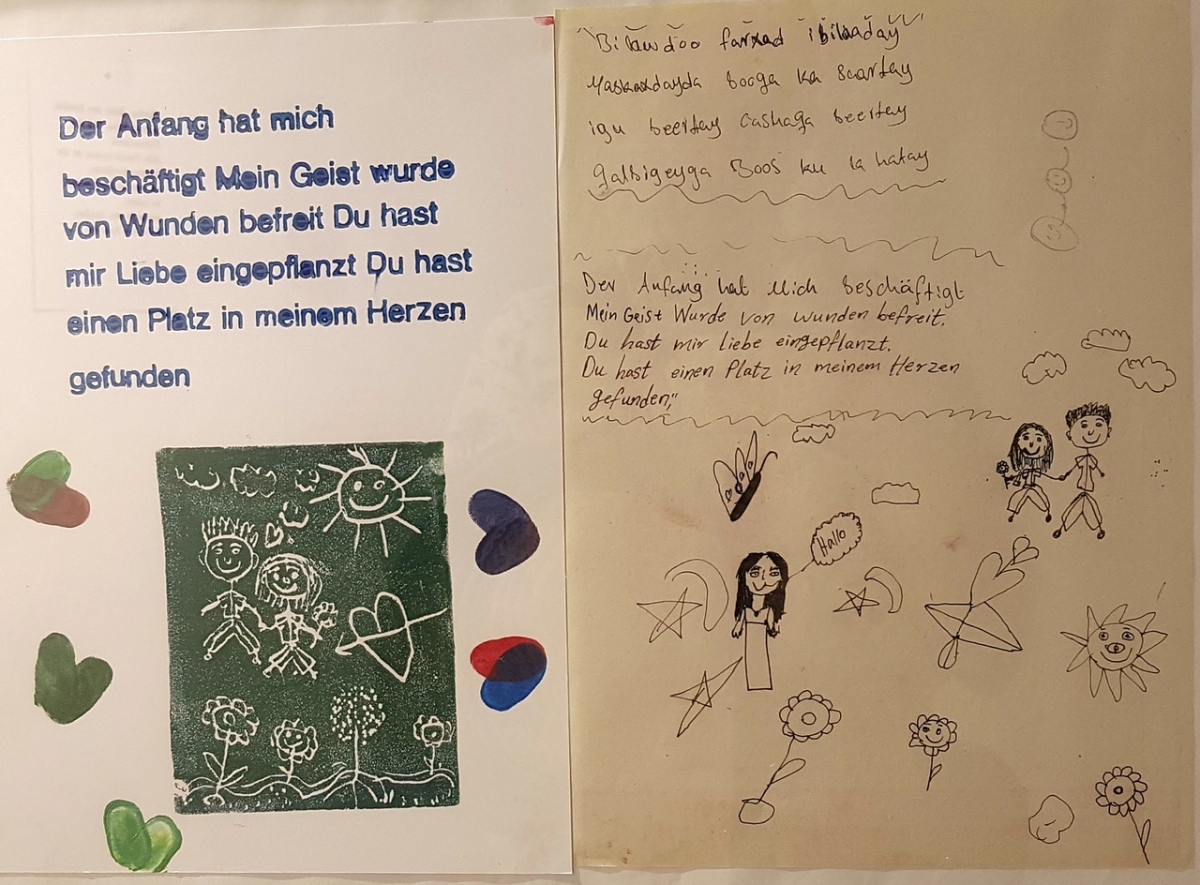 Der Anfang hat mich
beschäftigt Mein Geist wurde
von Wunden befreit Du hast
mir Liebe eingepflanzt Du hast
einen Platz in meinem Herzen
gefunden
farxad
booga ka Saartay
igu beertay Cashaqa beertay
galbigeyga Boos ku la hatay
Der Anfang hat Mich beschäftigt
Mein Geist Wurde von wunden befreit.
Du hast mir liebe eingepflanzt.
Du hast einen Platz in meinem Herzen
gefunden,,
Hallo